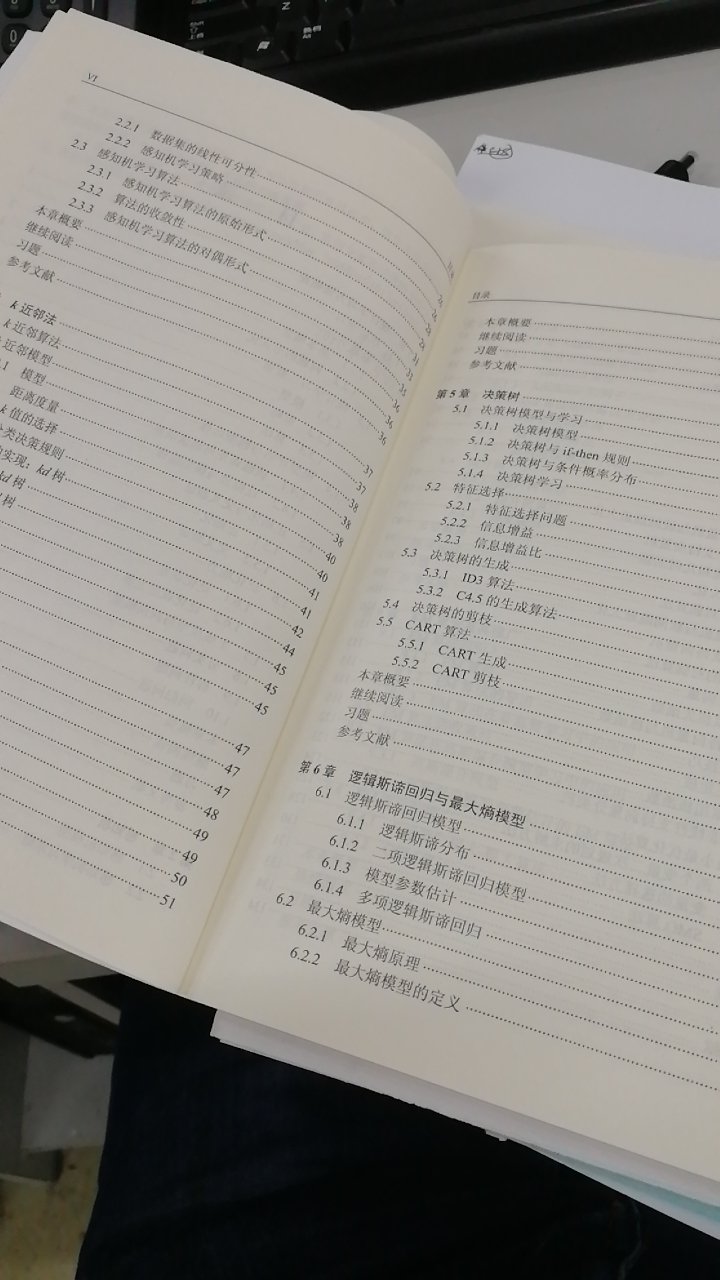 VI
2.2.1 数据集的线性可分性
2.2.2 感知机学习策略
2.3 感知机学习算法
2.3.1 感知机学习算法的原始形式
2.3.2 算法的收敛性
2.3.3 感知机学习算法的对偶形式
本章概要
继续阅读
习题
参考文献
k近邻法
k近邻算法
近邻模型
模型
距离度量
k值的选择
分类决策规则
的实现:kd树
kd树
树
35
36
36
36
37
37
38
38
40
40
41
41
42
44
45
45
45
47
47
47
48
49
49
50
51
目录
本章概要
继续阅读
习题
参考文献
第5章 决策树
5.1 决策树模型与学习
5.1.1 决策树模型
5.1.2 决策树与if-then规则
5.1.3 决策树与条件概率分布
5.1.4 决策树学习
5.2 特征选择
5.2.1 特征选择问题
5.2.2 信息增益
5.2.3 信息增益比
5.3 决策树的生成
5.3.1 ID3算法
5.3.2 C4.5的生成算法
5.4 决策树的剪枝
5.5 CART算法
5.5.1 CART生成
5.5.2 CART剪枝
本章概要
继续阅读
习题
参考文献
第6章 逻辑斯谛回归与最大熵模型
6.1 逻辑斯谛回归模型
6.1.1 逻辑斯谛分布
6.1.2 二项逻辑斯谛回归模型
6.1.3 模型参数估计
6.1.4 多项逻辑斯谛回归
6.2 最大熵模型
6.2.1 最大熵原理
6.2.2 最大熵模型的定义